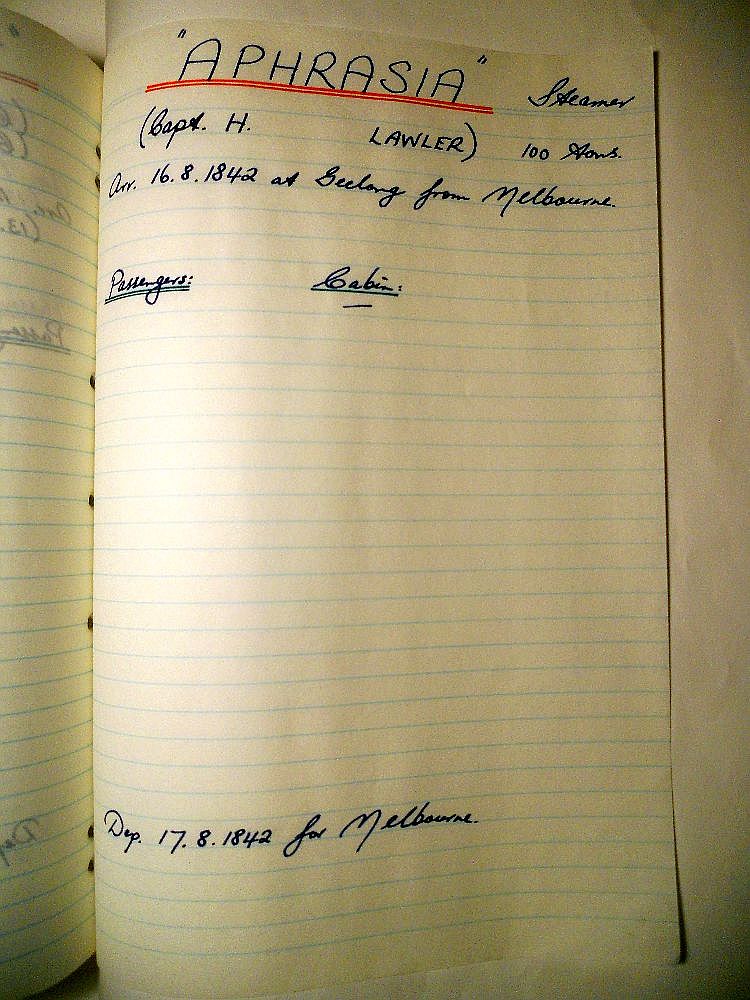 "APHRASIA" Steamer
(Capt. H. LAWLER) 100 Tons.
Arr. 16.8.1842 at Geelong from Melbourne.
Passengers: Cabin:
Dep. 17.8.1842 for Melbourne.